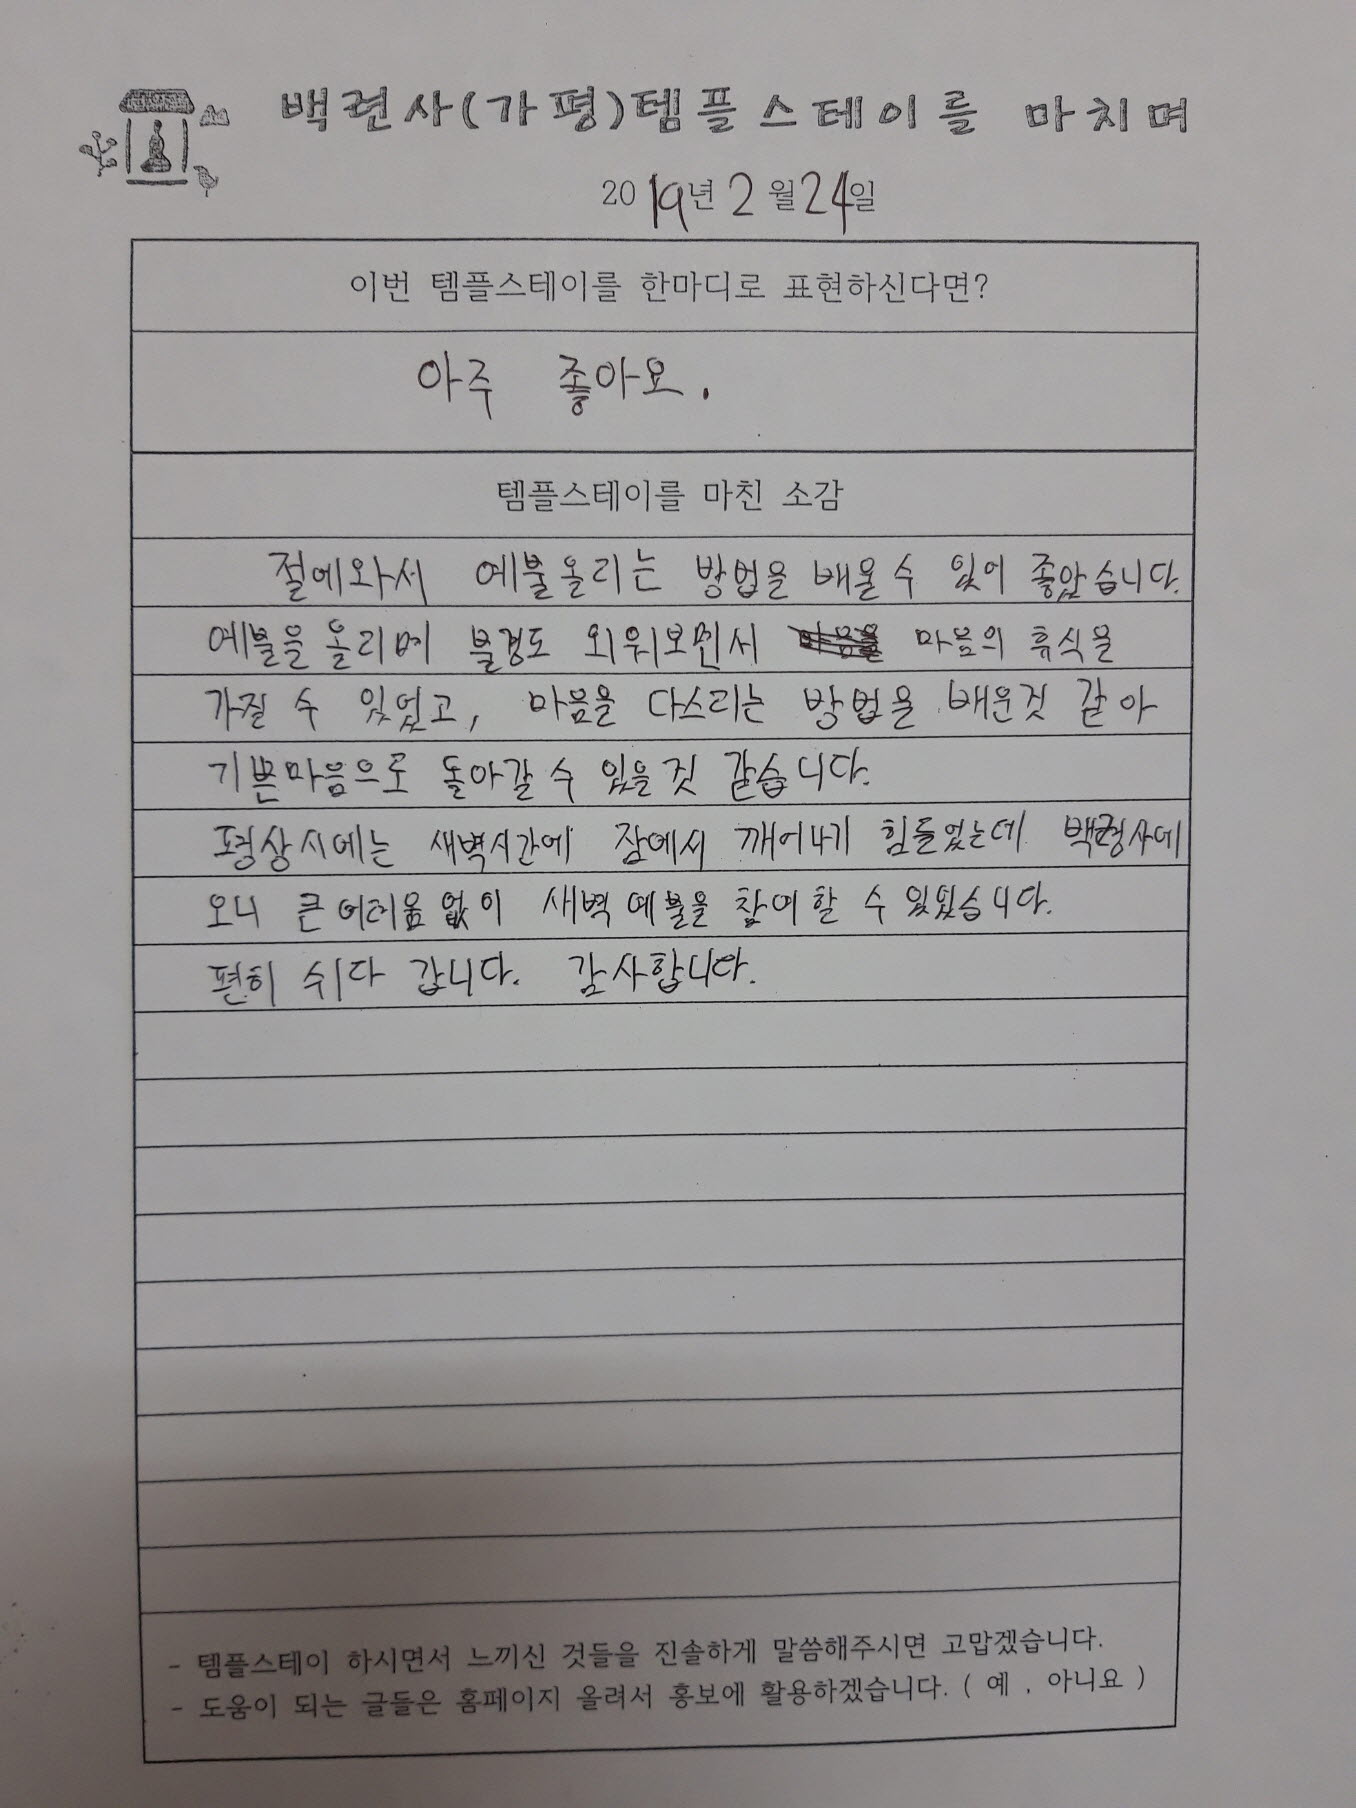 백련사(가평)템플스테이를 마치며
2019년 2월 24일
이번 템플스테이를 한마디로 표현하신다면?
아주 좋아요.
템플스테이를 마친 소감
절에와서 예불올리는 방법을 배울 수 있어 좋았습니다.
예불을 올리며 불경도 외워보면서 마음의 휴식을
가질 수 있었고, 마음을 다스리는 방법을 배운것 같아
기쁜마음으로 돌아갈 수 있을것 같습니다.
평상시에는 새벽시간에 잠에서 깨어나기 힘들었는데 백령사에
오니 큰 어려움 없이 새벽 예불을 참여할 수 있었습니다.
편히 쉬다 갑니다. 감사합니다.
- 템플스테이 하시면서 느끼신 것들을 진솔하게 말씀해주시면 고맙겠습니다.
- 도움이 되는 글들은 홈페이지 올려서 홍보에 활용하겠습니다. ( 예 , 아니요 )